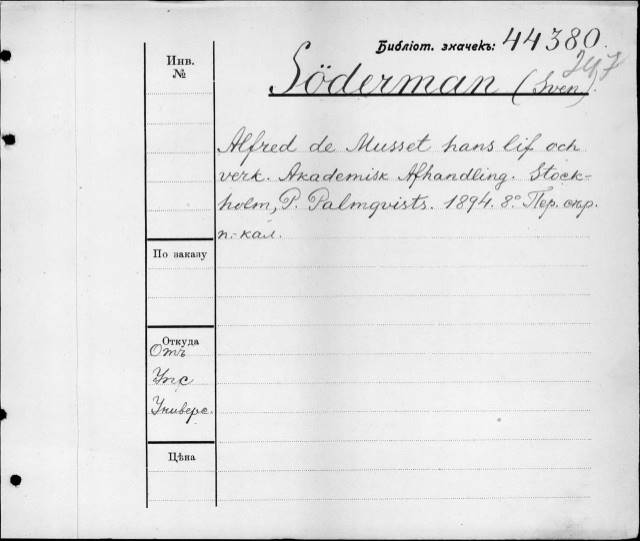 Библіот. значекъ: 44380.
247
Инв.
№
Söderman (Sven).
Alfred de Musset hans lif och
verk. Akademisk Afhandling. Stock-
holm, P. Palmqvists. 1894. 8° Пер. окр.
п.-кал.
По заказу
Откуда
Отъ
Упс
Универс.
Цѣна